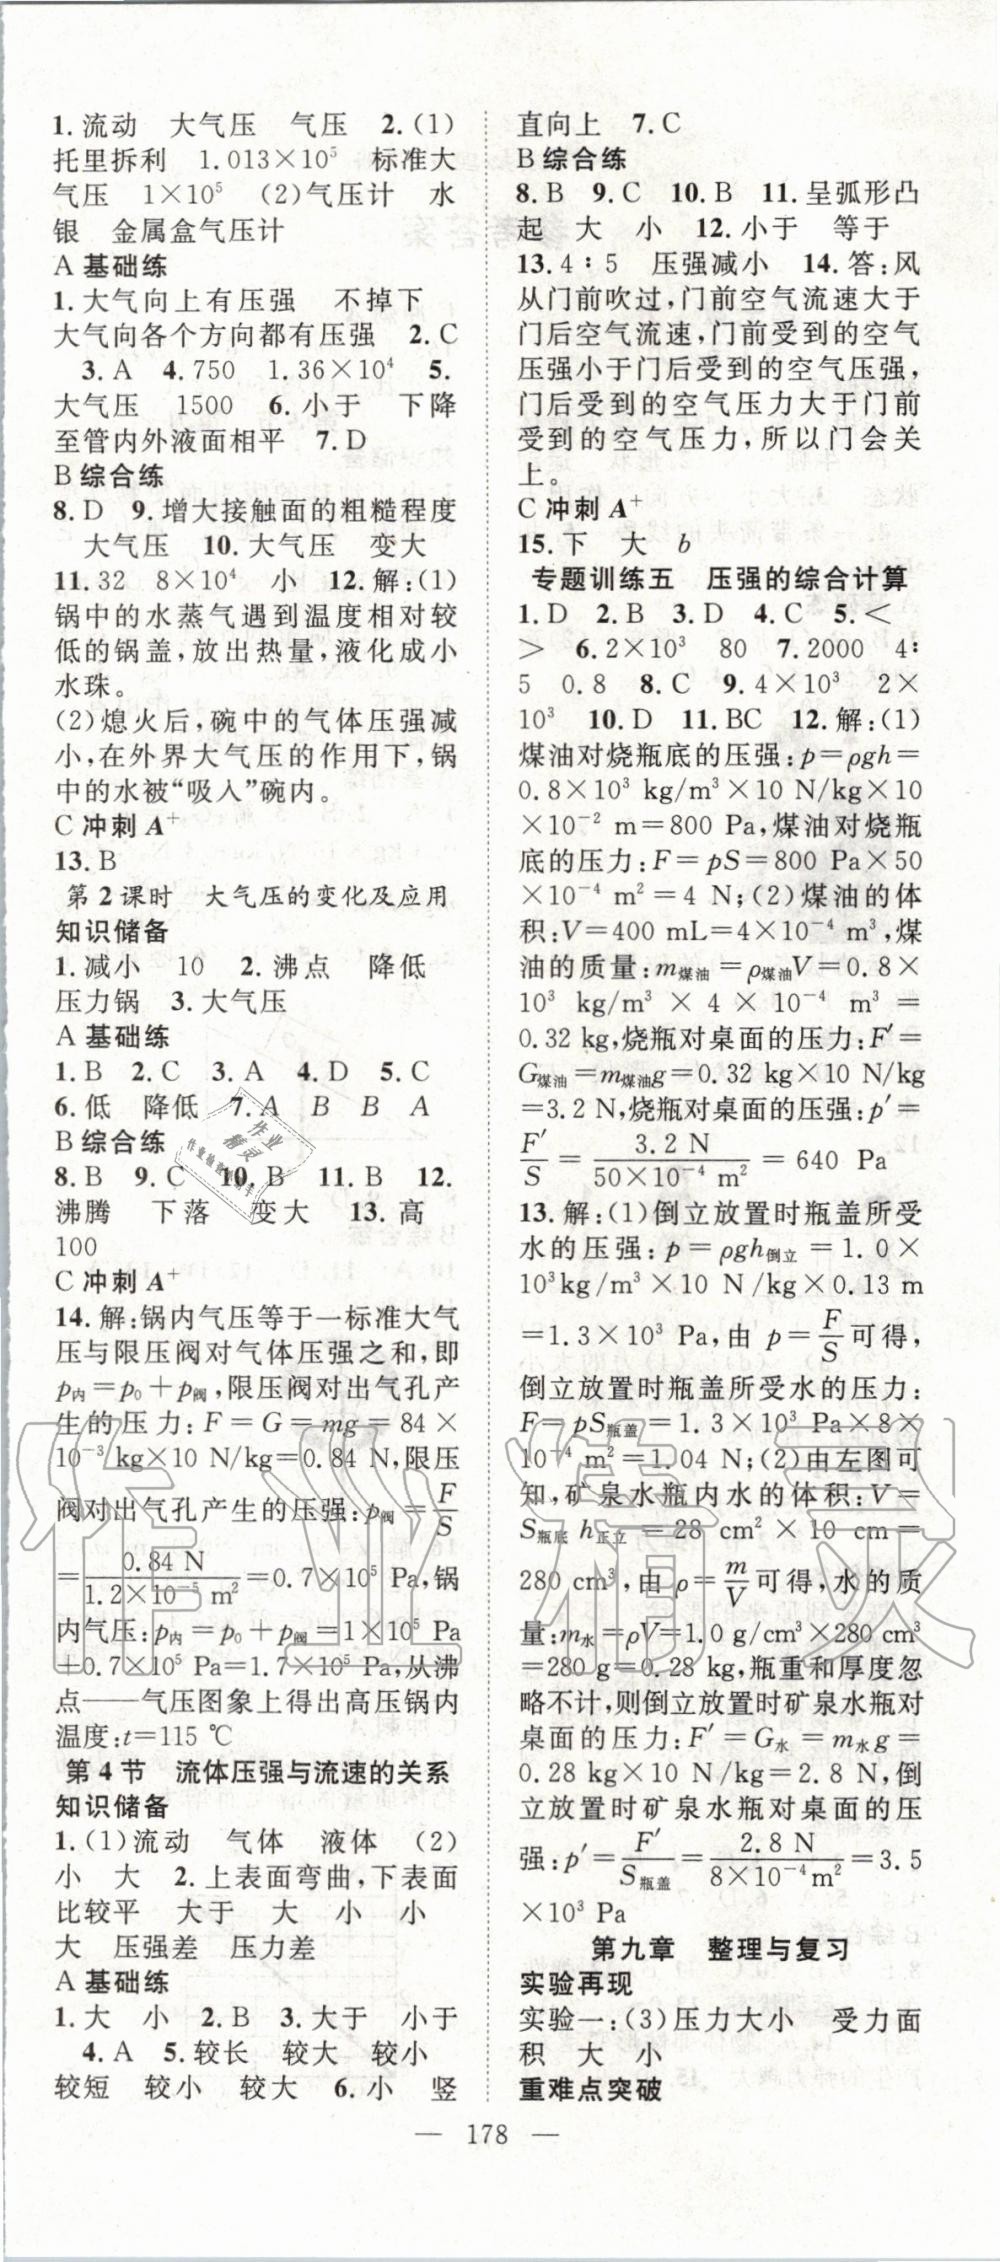 1.流动　大气压　气压　2.(1)
托里拆利　1.013×10⁵　标准大
气压　1×10⁵　(2)气压计　水
银　金属盒气压计
A 基础练
1.大气向上有压强　不掉下
大气向各个方向都有压强　2.C
3.A　4.750　1.36×10⁴　5.
大气压　1500　6.小于　下降
至管内外液面相平　7.D
B 综合练
8.D　9.增大接触面的粗糙程度
大气压　10.大气压　变大
11.32　8×10⁴　小　12.解:(1)
锅中的水蒸气遇到温度相对较
低的锅盖,放出热量,液化成小
水珠。
(2)熄火后,碗中的气体压强减
小,在外界大气压的作用下,锅
中的水被“吸入”碗内。
C 冲刺 A⁺
13.B
第 2 课时　大气压的变化及应用
知识储备
1.减小　10　2.沸点　降低
压力锅　3.大气压
A 基础练
1.B　2.C　3.A　4.D　5.C
6.低　降低　7.A　B　B　A
B 综合练
8.B　9.C　10.B　11.B　12.
沸腾　下落　变大　13.高
100
C 冲刺 A⁺
14.解:锅内气压等于一标准大气
压与限压阀对气体压强之和,即
p内=p₀+p阀,限压阀对出气孔产
生的压力:F=G=mg=84×
10⁻³ kg×10 N/kg=0.84 N,限压
阀对出气孔产生的压强:p阀=F/S
=0.84 N/(1.2×10⁻⁵ m²)=0.7×10⁵ Pa,锅
内气压:p内=p₀+p阀=1×10⁵ Pa
+0.7×10⁵ Pa=1.7×10⁵ Pa,从沸
点——气压图象上得出高压锅内
温度:t=115 ℃
第 4 节　流体压强与流速的关系
知识储备
1.(1)流动　气体　液体　(2)
小　大　2.上表面弯曲,下表面
比较平　大于　大　小　小
大　压强差　压力差
A 基础练
1.大　小　2.B　3.大于　小于
4.A　5.较长　较大　较小
较短　较小　较大　6.小　竖
直向上　7.C
B 综合练
8.B　9.C　10.B　11.呈弧形凸
起　大　小　12.小于　等于
13.4∶5　压强减小　14.答:风
从门前吹过,门前空气流速大于
门后空气流速,门前受到的空气
压强小于门后受到的空气压强,
门后受到的空气压力大于门前
受到的空气压力,所以门会关
上。
C 冲刺 A⁺
15.下　大　b
专题训练五　压强的综合计算
1.D　2.B　3.D　4.C　5.<
>　6.2×10³　80　7.2000　4∶
5　0.8　8.C　9.4×10³　2×
10³　10.D　11.BC　12.解:(1)
煤油对烧瓶底的压强:p=ρgh=
0.8×10³ kg/m³×10 N/kg×10
×10⁻² m=800 Pa,煤油对烧瓶
底的压力:F=pS=800 Pa×50
×10⁻⁴ m²=4 N;(2)煤油的体
积:V=400 mL=4×10⁻⁴ m³,煤
油的质量:m煤油=ρ煤油V=0.8×
10³ kg/m³ × 4 × 10⁻⁴ m³ =
0.32 kg,烧瓶对桌面的压力:F′=
G煤油=m煤油g=0.32 kg×10 N/kg
=3.2 N,烧瓶对桌面的压强:p′=
F′/S=3.2 N/(50×10⁻⁴ m²)=640 Pa
13.解:(1)倒立放置时瓶盖所受
水的压强:p=ρgh倒立=1.0×
10³kg/m³×10 N/kg×0.13 m
=1.3×10³ Pa,由 p=F/S可得,
倒立放置时瓶盖所受水的压力:
F=pS瓶盖=1.3×10³ Pa×8×
10⁻⁴ m²=1.04 N;(2)由左图可
知,矿泉水瓶内水的体积:V=
S瓶底 h正立=28 cm²×10 cm=
280 cm³,由 ρ=m/V可得,水的质
量:m水=ρV=1.0 g/cm³×280 cm³
=280 g=0.28 kg,瓶重和厚度忽
略不计,则倒立放置时矿泉水瓶对
桌面的压力:F′=G水=m水g=
0.28 kg×10 N/kg=2.8 N,倒
立放置时矿泉水瓶对桌面的压
强:p′=F′/S瓶盖=2.8 N/(8×10⁻⁴m²)=3.5
×10³ Pa
第九章　整理与复习
实验再现
实验一:(3)压力大小　受力面
积　大　小
重难点突破
— 178 —